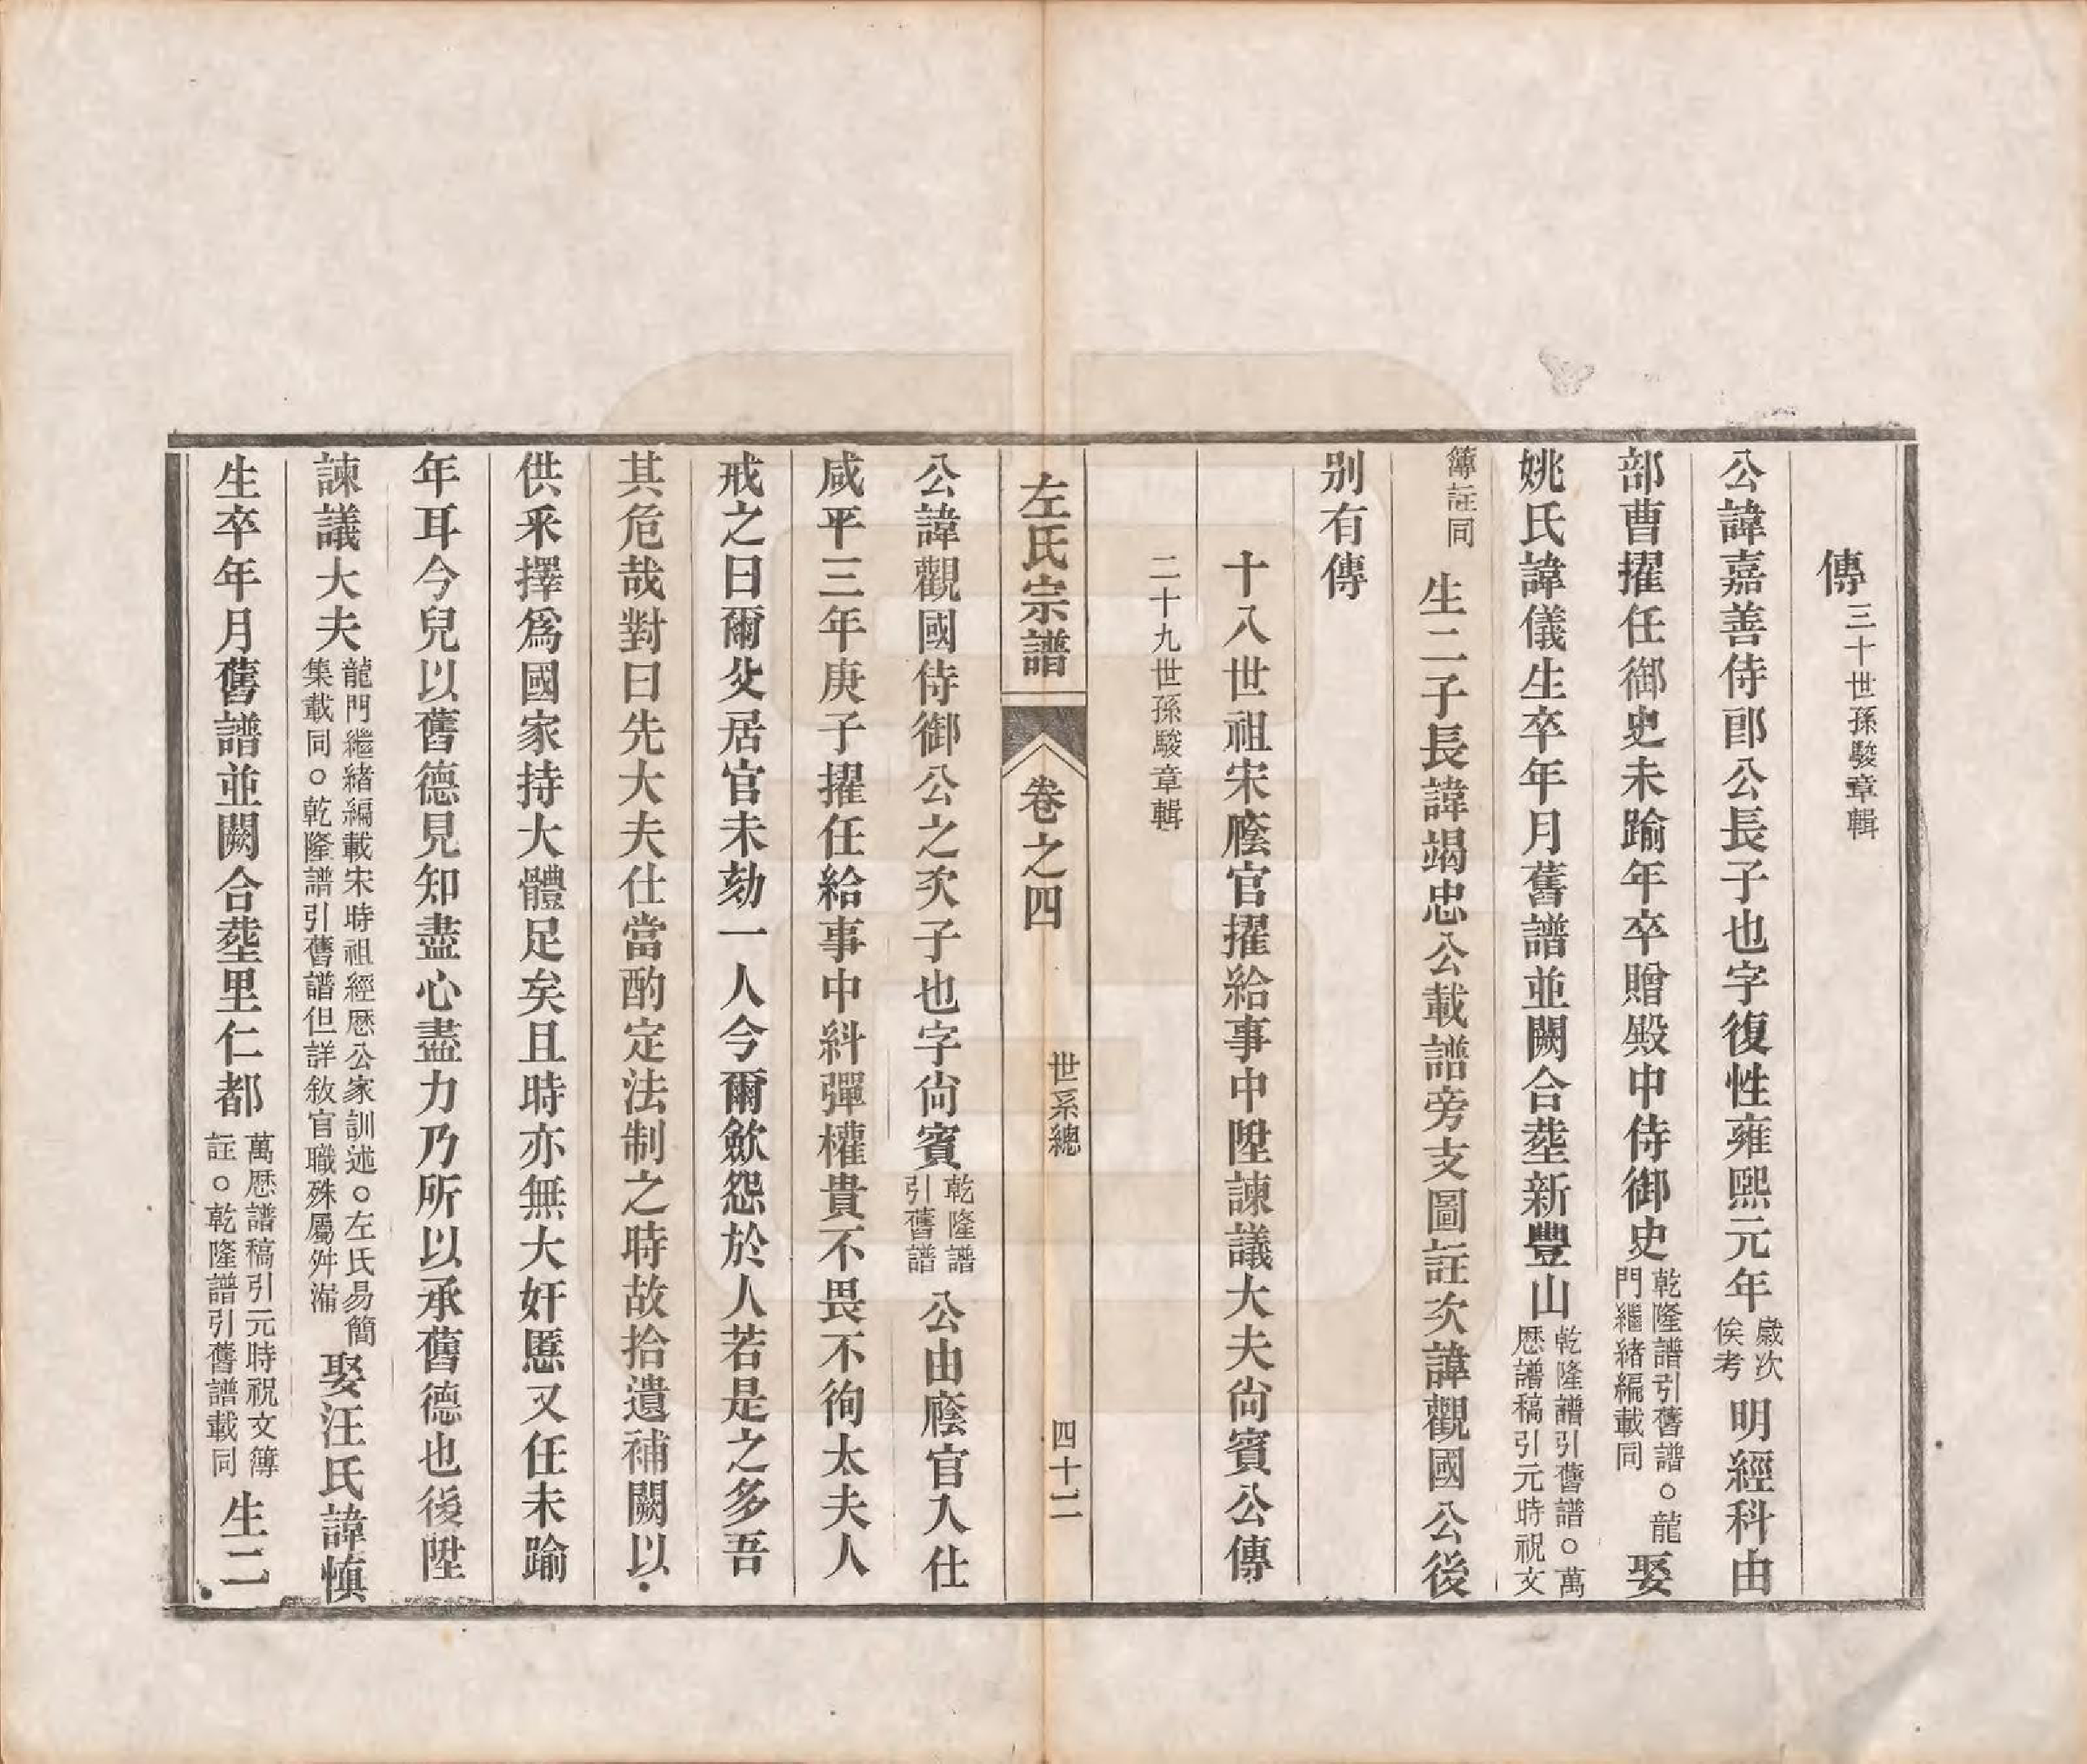 傳三十世孫駿章輯
公諱嘉善侍郎公長子也字復性雍熙元年歲次俟考明經科由
部曹擢任御史未踰年卒贈殿中侍御史乾隆譜引舊譜○龍門繼緒編載同娶
姚氏諱儀生卒年月舊譜並闕合塟新豐山乾隆譜引舊譜○萬歷譜稿引元時祝文
簿註同生二子長諱竭忠公載譜旁支圖註次諱觀國公後
別有傳
十八世祖宋廕官擢給事中陞諫議大夫尙賓公傳
二十九世孫駿章輯
左氏宗譜 卷之四 世系總 四十二
公諱觀國侍御公之次子也字尙賓乾隆譜引舊譜公由廕官入仕
咸平三年庚子擢任給事中糾彈權貴不畏不徇太夫人
戒之曰爾父居官未劾一人今爾歛怨於人若是之多吾
其危哉對曰先大夫仕當酌定法制之時故拾遺補闕以
供采擇爲國家持大體足矣且時亦無大奸慝又任未踰
年耳今兒以舊德見知盡心盡力乃所以承舊德也後陞
諫議大夫龍門繼緒編載宋時祖經歷公家訓述○左氏易簡集載同○乾隆譜引舊譜但詳敘官職殊屬舛漏娶汪氏諱愼
生卒年月舊譜並闕合塟里仁都萬歷譜稿引元時祝文簿註○乾隆譜引舊譜載同生二